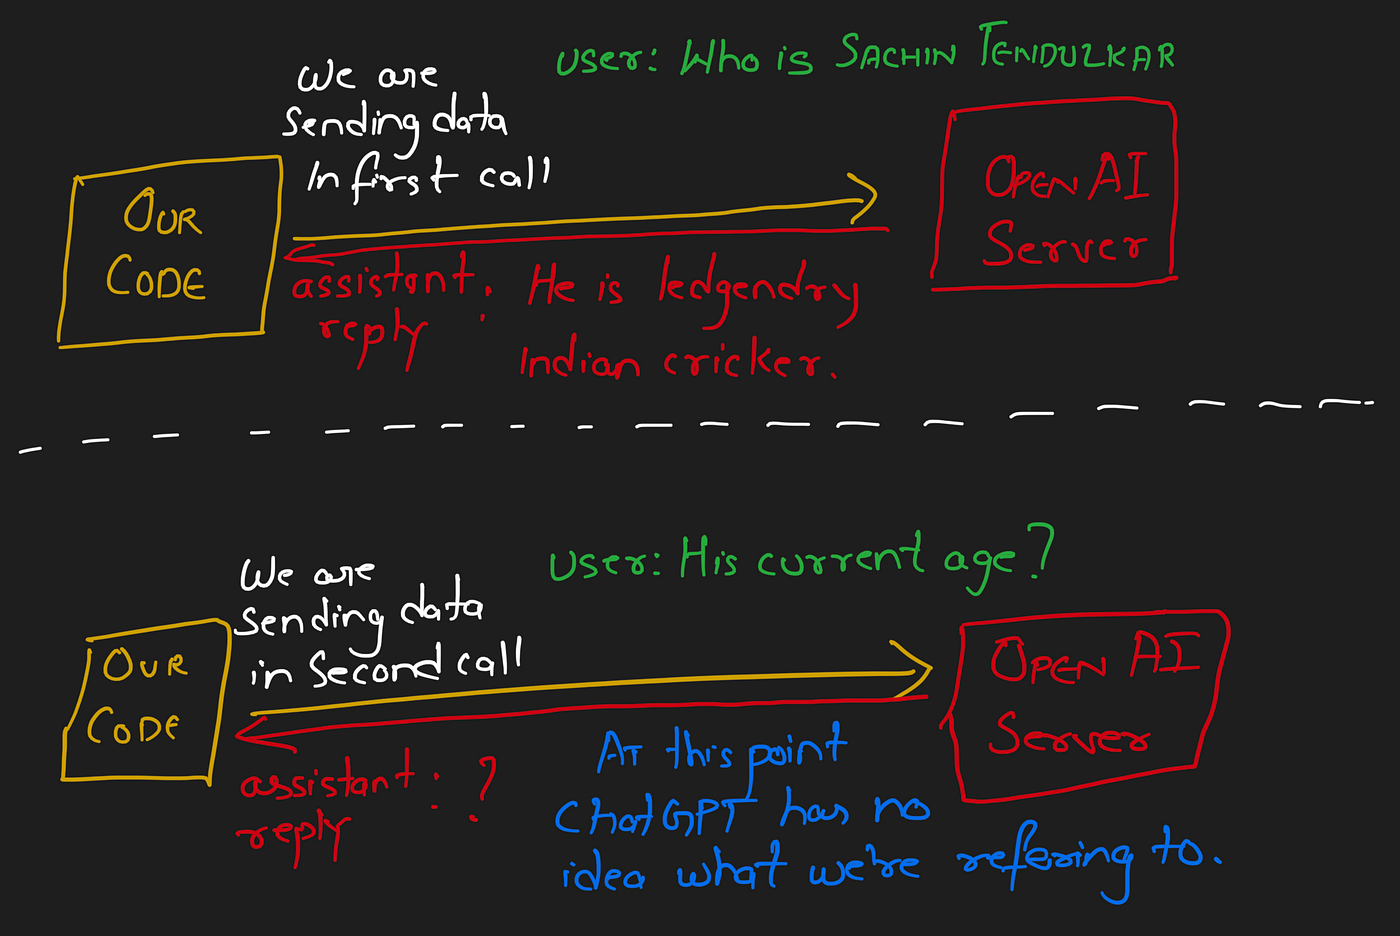 user: Who is SACHIN TENDULKAR
We are
sending data
In first call
OUR
CODE
OPEN AI
Server
assistant : He is ledgendry
reply
Indian cricker.
user: His current age?
We are
sending data
in second call
OUR
CODE
OPEN AI
Server
assistant : ?
reply
AT this point
ChatGPT has no
idea what we're refering to.